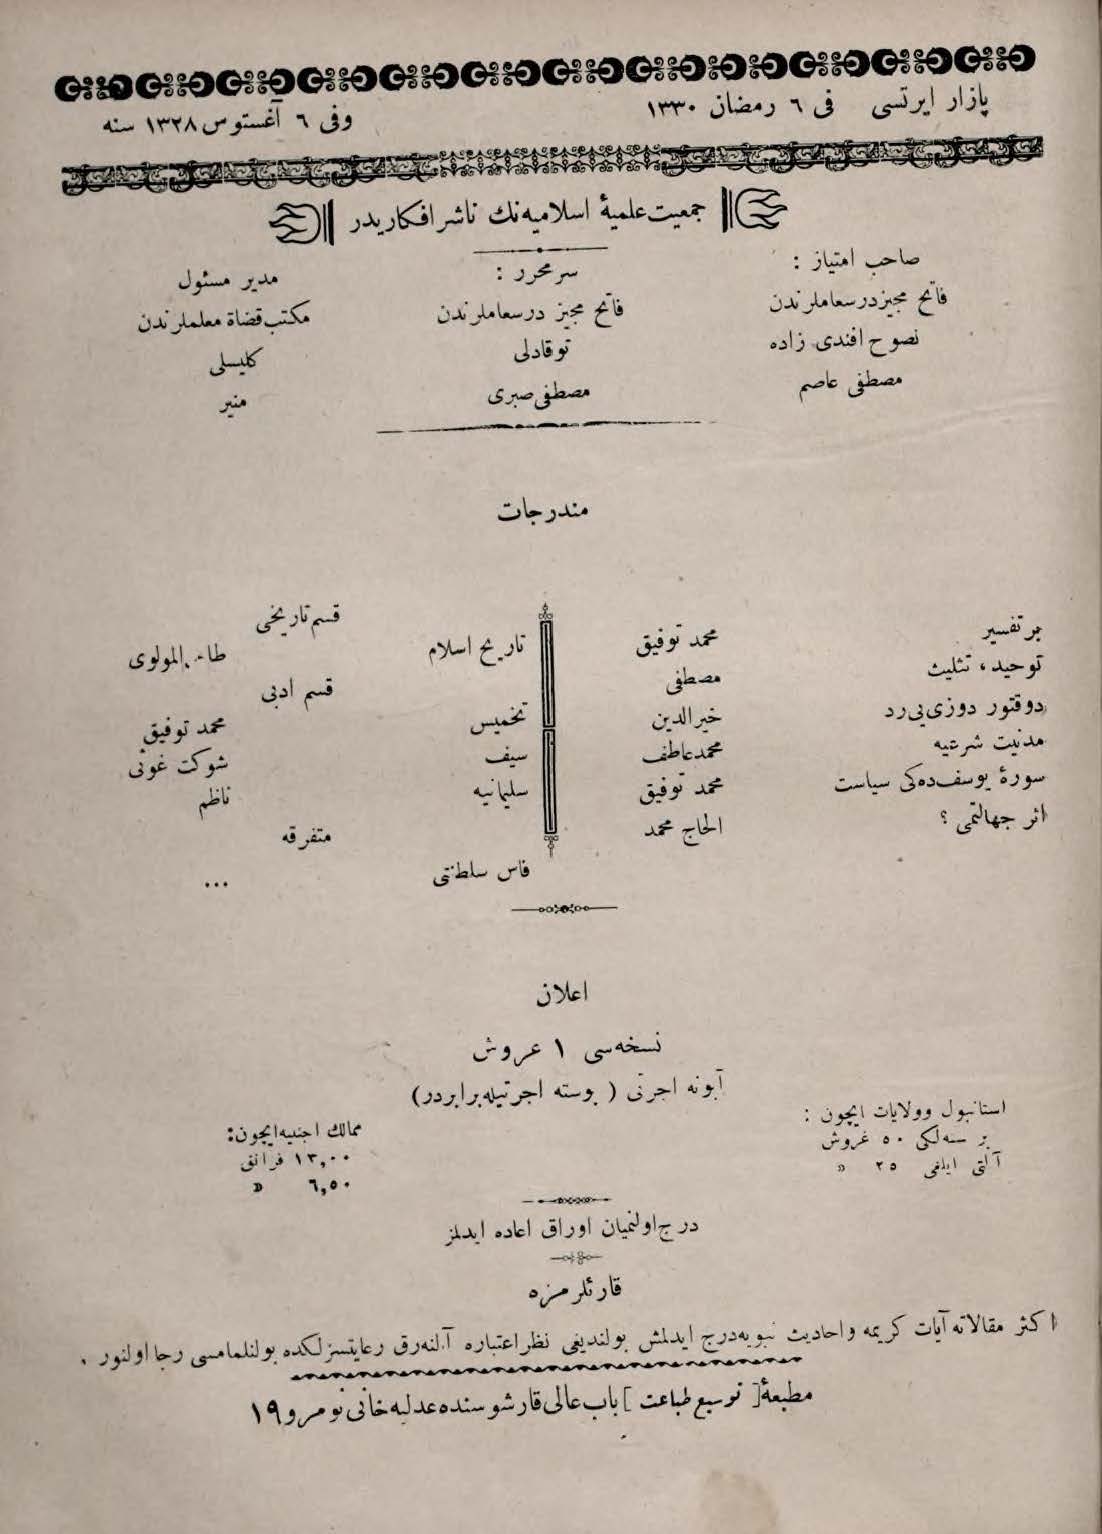 پازار ایرتسی فی ٦ رمضان ١٣٣٠
وفی ٦ آغستوس ١٣٢٨ سنه
جمعیت علمیهٔ اسلامیه‌نك ناشر افكاریدر
صاحب امتیاز :
فاتح مجیز درسعاملرندن
نصوح افندی زاده
مصطفی عاصم
سر محرر :
فاتح مجیز درسعاملرندن
توقادلی
مصطفی صبری
مدیر مسئول
مكتب قضاة معلملرندن
كلیسلی
منیر
مندرجات
بر تفسیر محمد توفیق
توحید، تثلیث مصطفی
دوقتور دوزی‌یی رد خیرالدین
مدنیت شرعیه محمد عاطف
سورهٔ یوسف‌ده‌كی سیاست محمد توفیق
اثر جهالتمی ؟ الحاج محمد
قسم تاریخی
تاریخ اسلام طاهر المولوی
قسم ادبی
تخمیس محمد توفیق
سیف شوكت غوثی
سلیمانیه ناظم
متفرقه
فاس سلطنتی ...
اعلان
نسخه‌سی ١ غروش
آبونه اجرتی ( پوسته اجرتیله برابردر)
استانبول وولایات ایچون :
بر سنه‌لكی ٥٠ غروش
آلتی ایلغی ٢٥ »
ممالك اجنبیه ایچون:
١٣,٠٠ فرانق
٦,٥٠ »
درج اولنمیان اوراق اعاده ایدلمز
قارئلرمزه
اكثر مقالاته آیات كریمه و احادیث نبویه درج ایدلمش بولندیغی نظر اعتباره آلنه‌رق رعایتسزلكده بولنلمامسی رجا اولنور .
مطبعهٔ [ توسیع طباعت ] باب عالی قارشوسنده عدلیه خانی نومرو ١٩